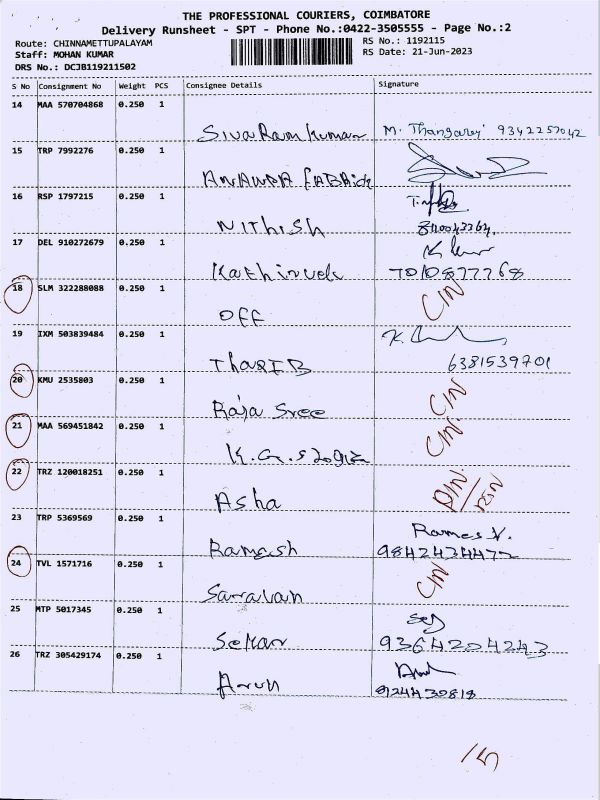 THE PROFESSIONAL COURIERS, COIMBATORE
Delivery Runsheet - SPT - Phone No.:0422-3505555 - Page No.:2
Route: CHINNAMETTUPALAYAM
RS No.: 1192115
Staff: MOHAN KUMAR
RS Date: 21-Jun-2023
DRS No.: DCJB119211502
S No Consignment No Weight PCS Consignee Details Signature
14 MAA 570704868 0.250 1
SivaRamkumar M. Thangaraj 9342257042
15 TRP 7992276 0.250 1
16 RSP 1797215 0.250 1
Nithish
17 DEL 910272679 0.250 1
Kathirvel 7010877768
18 SLM 322288088 0.250 1 C/N
OFF
19 IXM 503839484 0.250 1
6381539701
20 KMU 2535803 0.250 1 C/N
Raja Sree
21 MAA 569451842 0.250 1 C/N
K.G.S
22 TRZ 120018251 0.250 1
Asha
23 TRP 5369569 0.250 1
Ramesh
24 TVL 1571716 0.250 1 C/N
25 MTP 5017345 0.250 1
Sekar 9364204243
26 TRZ 305429174 0.250 1
Arun 9124430818
15